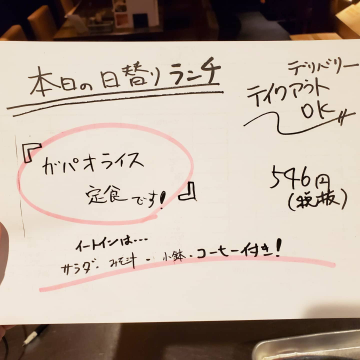 本日の日替りランチ
デリバリー
テイクアウト
OK
『ガパオライス
定食です!』
546円
(税抜)
イートインは…
サラダ・みそ汁・小鉢・コーヒー付き!